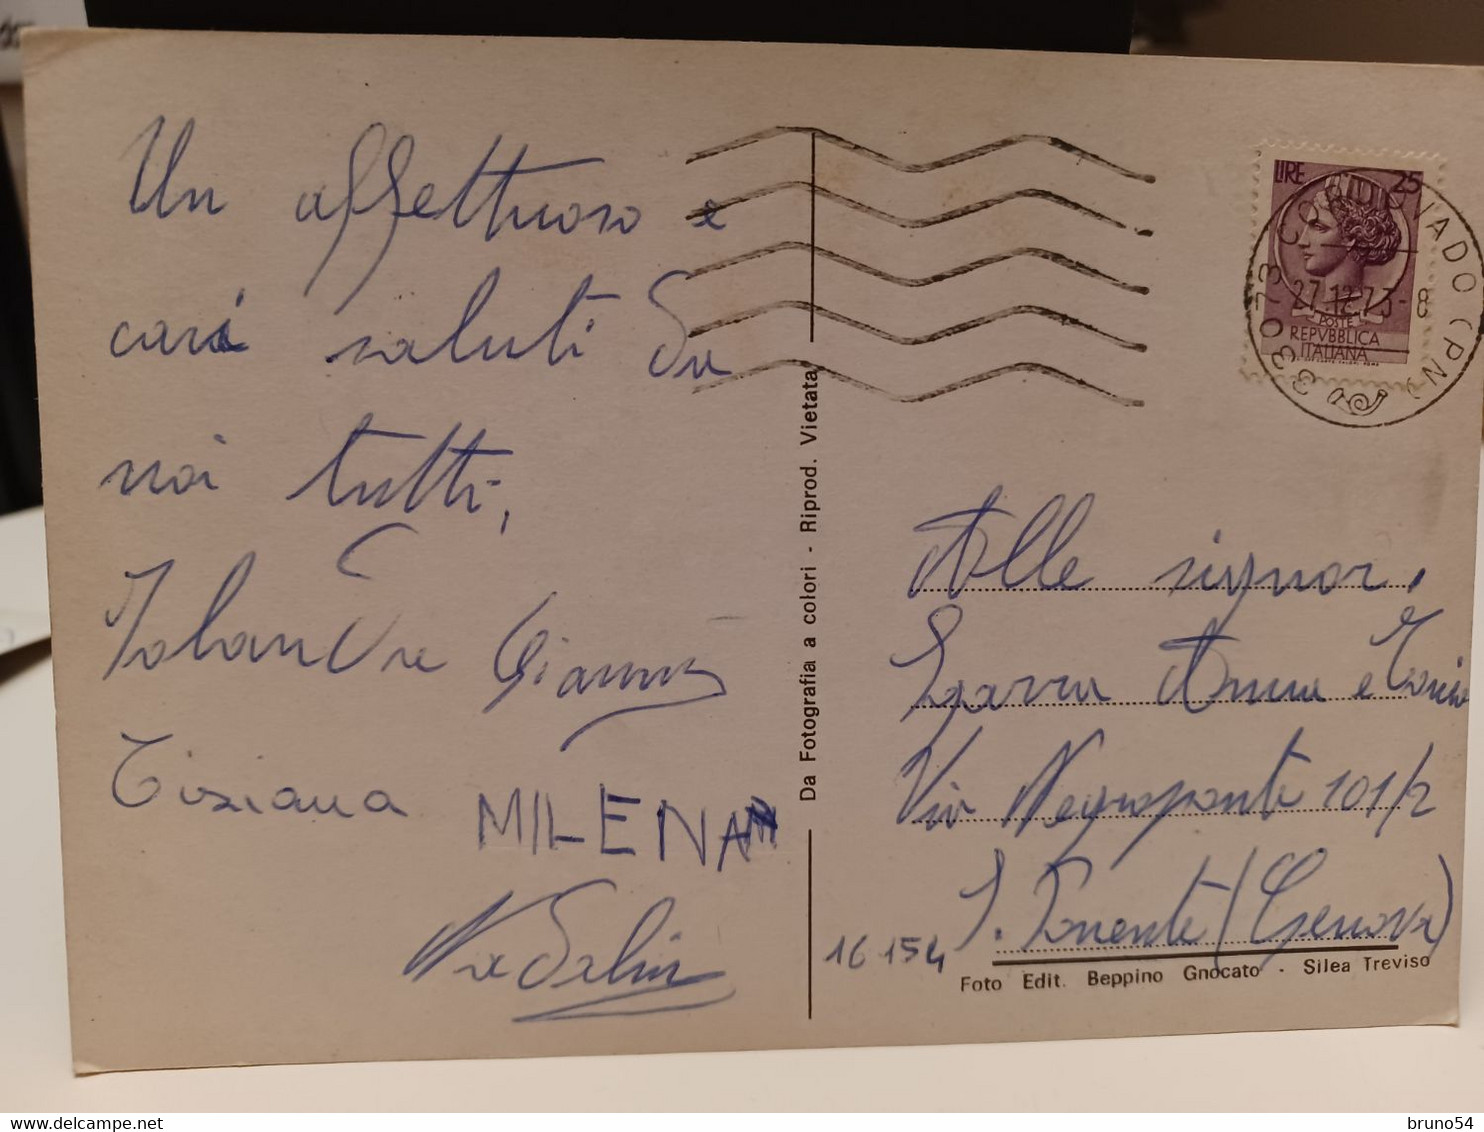 Un affettuoso e
cari saluti da
noi tutti,
Iolanda e Gianni
Tiziana MILENA
Nadalin
Da Fotografia a colori - Riprod. Vietata
LIRE 25
POSTE
REPVBBLICA
ITALIANA
33073 CORDOVADO (PN)
27.12.73-8
Alle signor.
Anna e Tonia
Via Negroponte 101/2
S. Ponente (Genova)
16154
Foto Edit. Beppino Gnocato - Silea Treviso
bruno54